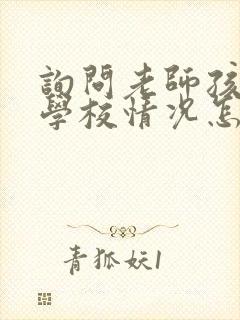 詢問老師孩
學校情况怎
青狐妖1